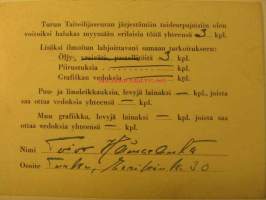 Turun Taiteilijaseuran järjestämiin taidearpajaisiin olen
valmis halukas myymään erilaisia töitä yhteensä 3 kpl.
Lisäksi ilmoitan lahjoittavani samaan tarkoitukseen:
Öljy-, vesiväri- pastellitöitä 3 kpl.
Piirustuksia — kpl.
Grafiikan vedoksia — kpl.
Puu- ja linoleikkauksia, levyjä lainaksi — kpl., joista
saa ottaa vedoksia yhteensä — kpl.
Muu grafiikka, levyjä lainaksi — kpl., josta saa ottaa
vedoksia yhteensä — kpl.
Nimi Toivo
Osoite Turku, 30